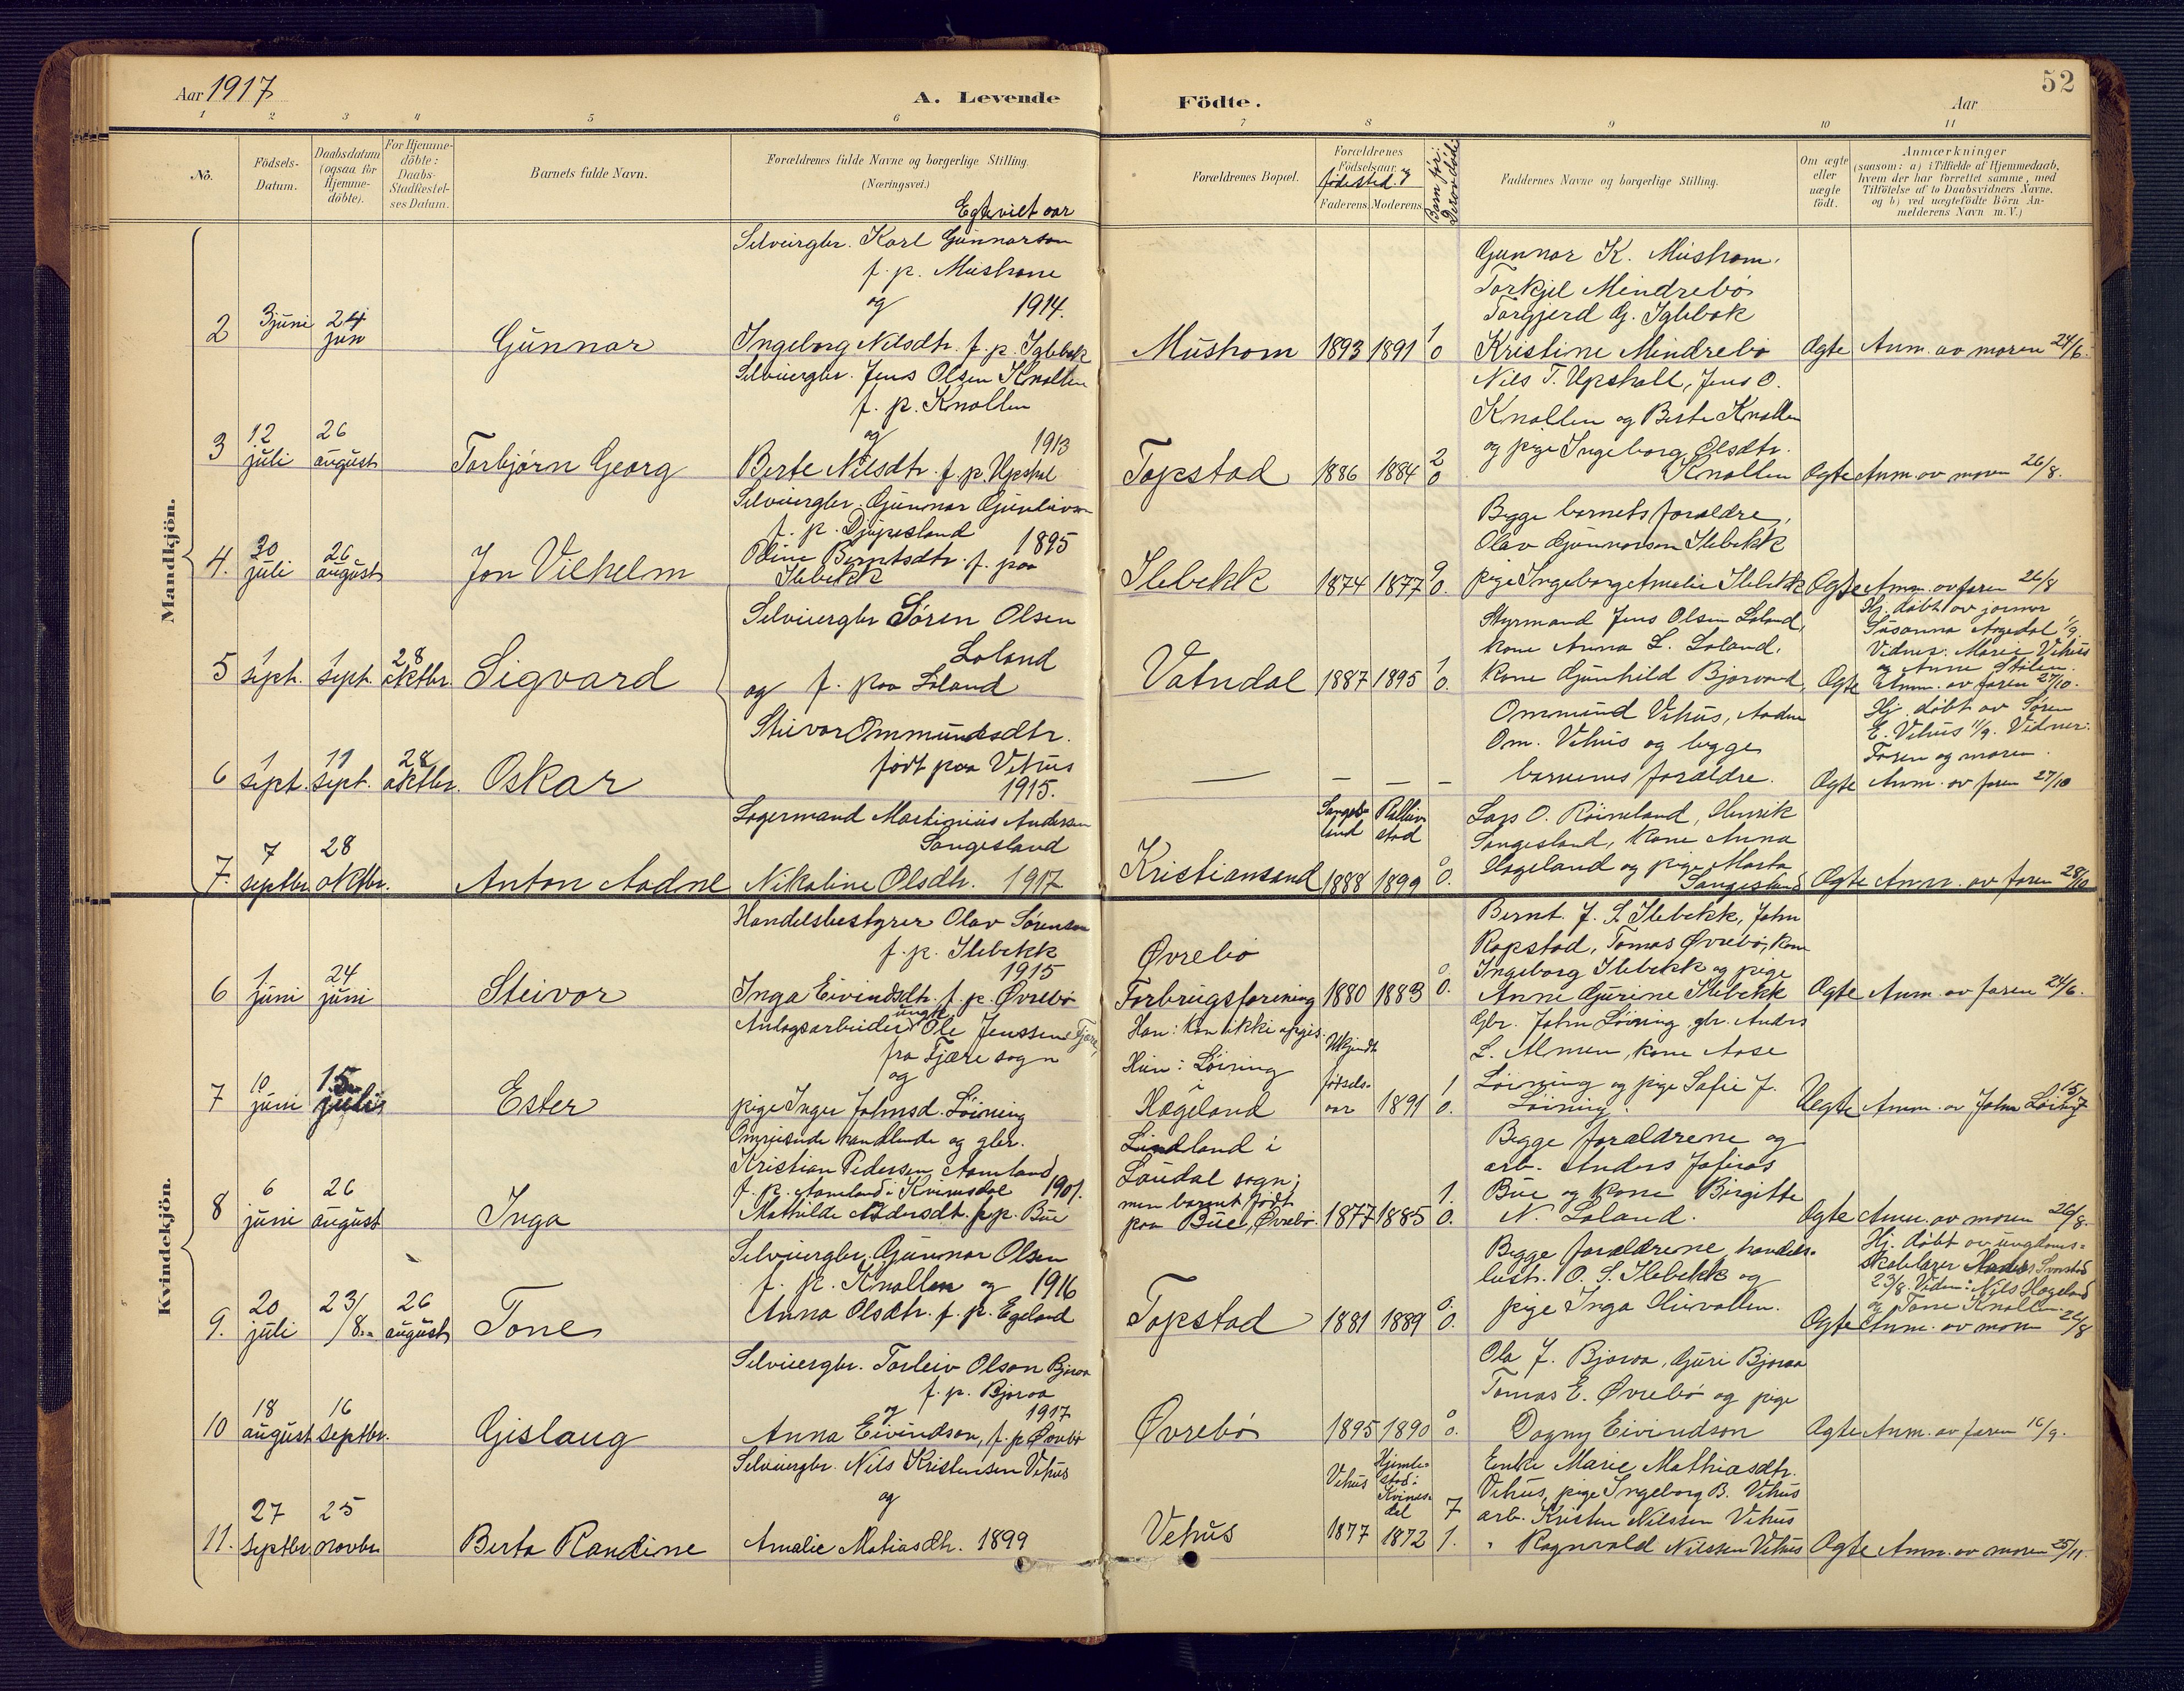 Aar 1917
A. Levende
Födte.
Aar
52
1 2 3 4 5 6 7 8 9 10 11
No.
Födsels-
Datum.
Daabsdatum
(ogsaa for
Hjemme-
döbte).
For Hjemme-
döbte:
Daabs-
Stadfæstel-
ses Datum.
Barnets fulde Navn.
Forældrenes fulde Navne og borgerlige Stilling.
(Næringsvei.)
Egteviet aar
Forældrenes Bopæl.
Forældrenes
Födselsaar.
fødested.
Faderens. Moderens.
Faddernes Navne og borgerlige Stilling.
Om ægte
eller
uægte
födt.
Anmærkninger
(saasom: a) i Tilfælde af Hjemmedaab,
hvem der har forrettet samme, med
Tilföielse af to Daabsvidners Navne.
og b) ved uegtefödte Börn An-
melderens Navn m. V.)
Mandkjön.
2
3 juni
24 jun
Gunnar
Selveiergbr. Karl Gunnarson
f. p. Mushom
og 1914.
Ingeborg Nilsdtr. f. p. Iglebæk
Mushom
1893 1891 1 0
Gunnar K. Mushom.
Torkjel Mindrebö
Torgjerd G. Iglebæk
Kristine Mindrebö
Ægte
Anm. av moren 24/6.
3
12 juli
26 august
Torbjørn Georg
Selveiergbr. Jens Olsen Knollen
f. p. Knollen
og 1913
Berte Nilsdtr. f. p. Upshal
Topstad
1886 1884 2 0
Nils T. Upshall, Jens O.
Knollen og Berte Knollen
og pige Ingeborg Olsdtr.
Knollen
Ægte
Anm. av moren 26/8.
4.
30 juli
26 august
Jon Vilhelm
Selveiergbr. Gunnar Gunleivsen
f. p. Djupesland
1895
Oline Berntsdtr. f. paa
Ilebekk
Ilebekk
1874 1877 9 0.
Begge barnets forældre,
Olav Gunnarson Ilebekk
pige Ingeborg Amalie Ilebekk
Ægte
Anm. av faren 26/8
5
1 sept.
1 sept.
28 oktbr.
Sigvard
Selveiergbr Søren Olsen
Løland
og f. paa Løland
Steivor Ommundsdtr.
født paa Vehus
1915.
Vatndal
1887 1895 1 0.
Styrmand Jens Olsen Løland,
kone Anna L. Løland,
kone Gunhild Bjorvand,
Ommund Vehus, Aadne
Om. Vehus og begge
barnenes forældre.
Ægte
Hj. døbt av jormor
Susanna Aagedal 1/9.
Vidner: Marie Vehus
og Anne Stölen.
Anm. av faren 27/10.
6
1 sept.
11 sept.
28 oktbr.
Oskar
— — — —
Ægte
Hj. døbt av Søren
E. Vehus 11/9. Vidner:
Faren og moren.
Anm. av faren 27/10
7.
7 septbr.
28 oktbr.
Anton Aadne
Lagermand Martinius Andersen
Sangesland
Nikoline Olsdtr. 1917
Kristiansand
Sangesland
1888 1899 0 0.
Lars O. Røineland, Henrik
Sangesland, kone Anna
Hageland og pige Marta
Sangesland
Ægte
Anm. av faren 28/10
Kvindekjön.
6
1 juni
24 juni
Steivor
Handelsbestyrer Olav Sørensen
f. p. Ilebekk
1915
Inga Eivindsdtr. f. p. Øvrebö
Øvrebö
Forbrugsforening
1880 1883 0 0.
Bernt J. S. Ilebekk, John
Rapstad, Tomas Øvrebö, kone
Ingeborg Ilebekk og pige
Anne Gurine Ilebekk
Ægte
Anm. av faren 24/6.
7
10 juni
15 juli
Ester
Anlægsarbeider ungk. Ole Jenssen
fra Fjære sogn
og
pige Inger Johnsd. Løining
Han: kan ikke opgis.
Hun: Løining
i
Hægeland
Ukjendt
fødsels-
aar
1891 1 0.
Gbr. John Løining, gbr. Anders
L. Almen, kone Aase
Løining og pige Sofie J.
Løining.
Uegte
Anm. av John Løining 15/7
8
6 juni
26 august
Inga
Omreisende handlende og gbr.
Kristian Pedersen Aamland
f. p. Aamland i Kvinesdal 1901.
Mathilde Andersdtr. f. p. Bue
Lindland i
Laudal sogn;
men barnet født
paa Bue, Øvrebö.
1877 1885 1. 0.
Begge forældrene og
arb. Anders Jofias
Bue og kone Birgitte
N. Løland.
Ægte
Anm. av moren 26/8.
9.
20 juli
23/8.
26 august
Tone
Selveiergbr. Gunnar Olsen
f. p. Knollen og 1916
Anna Olsdtr. f. p. Egeland
Topstad
1881 1889 0. 0.
Begge forældrene, handels-
bestr. O. S. Ilebekk og
pige Inga Hurvallen.
Ægte
Hj. døbt av ungdoms-
skolelærer
23/8. Vidner: Nils Hageland
og Tone Knollen.
Anm. av moren 26/8
10
18 august
16 septbr.
Gislaug
Selveiergbr. Torleiv Olson Bjoraa
f. p. Bjoraa
og 1917
Anna Eivindson, f. p. Øvrebö
Øvrebö
1895 1890 0 0.
Ola J. Bjoraa, Guri Bjoraa
Tomas E. Øvrebö og pige
Dagny Eivindson
Ægte
Anm. av faren 16/9.
11.
27 septbr.
25 novbr.
Berta Randine
Selveiergbr. Nils Kristensen Vehus
og
Amalie Matiasdtr. 1899
Vehus
Vehus
Kvines-
dal
1877 1872 7 1.
Enke Marie Mathiasdtr.
Vehus, pige Ingeborg B. Vehus
arb. Kristen Nilssen Vehus
" Ragnvald Nilssen Vehus
Ægte
Anm. av moren 25/11.